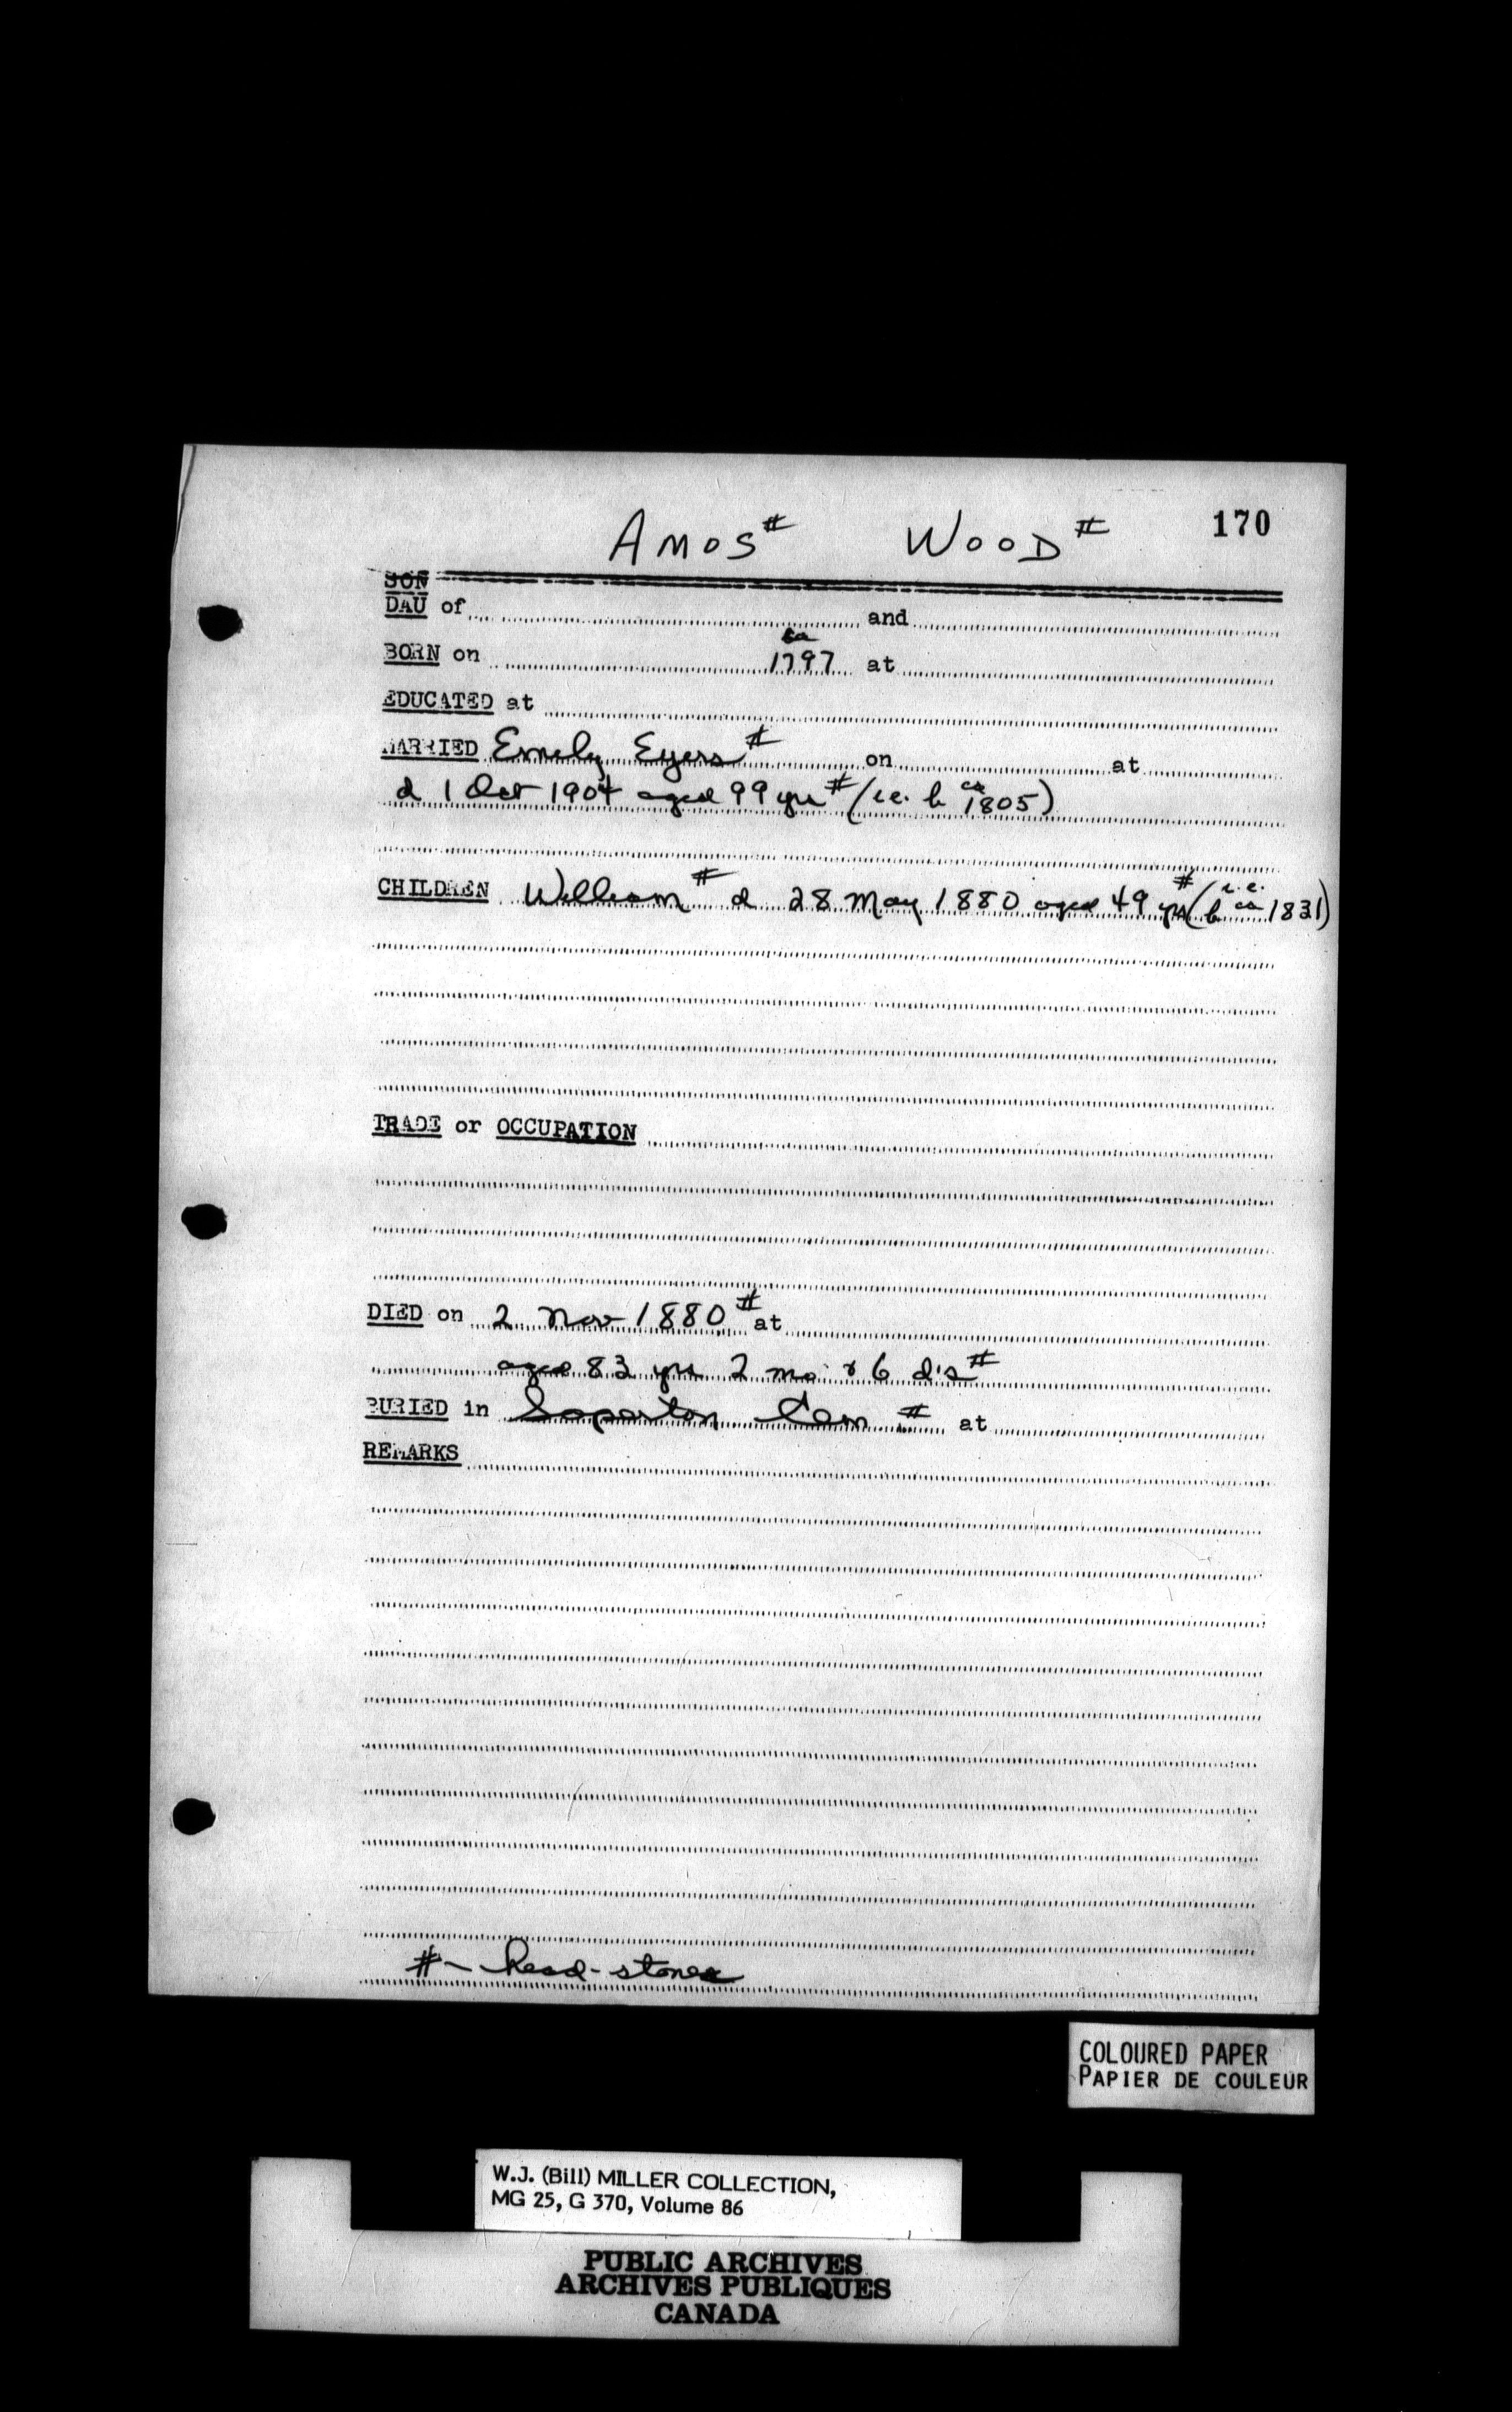 170
AMOS# WOOD#
SON
DAU of and
ca
BORN on 1797 at
EDUCATED at
MARRIED Emily Eyers# on at
d 1 Oct 1904 aged 99 yrs# (i.e. b ca 1805)
CHILDREN William# d 28 May 1880 aged 49 yrs# (i.e. b ca 1831)
TRADE or OCCUPATION
DIED on 2 Nov 1880# at
aged 83 yrs 2 mo & 6 d's#
BURIED in Soperton Cem# at
REMARKS
# - head-stones
COLOURED PAPER
PAPIER DE COULEUR
W.J. (Bill) MILLER COLLECTION,
MG 25, G 370, Volume 86
PUBLIC ARCHIVES
ARCHIVES PUBLIQUES
CANADA